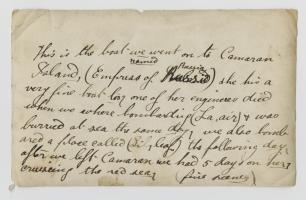 This is the boat we went on to Camaran
named Russia
Island, (Empress of she his a
very fine boat but one of her engineers died
when we where bombarding (La, air) & was
burried at sea the same day, we also bomb
ared a place called the following day
after we left Camaran we had 5 days on her
cruiseing the red sea, (fine scenery)